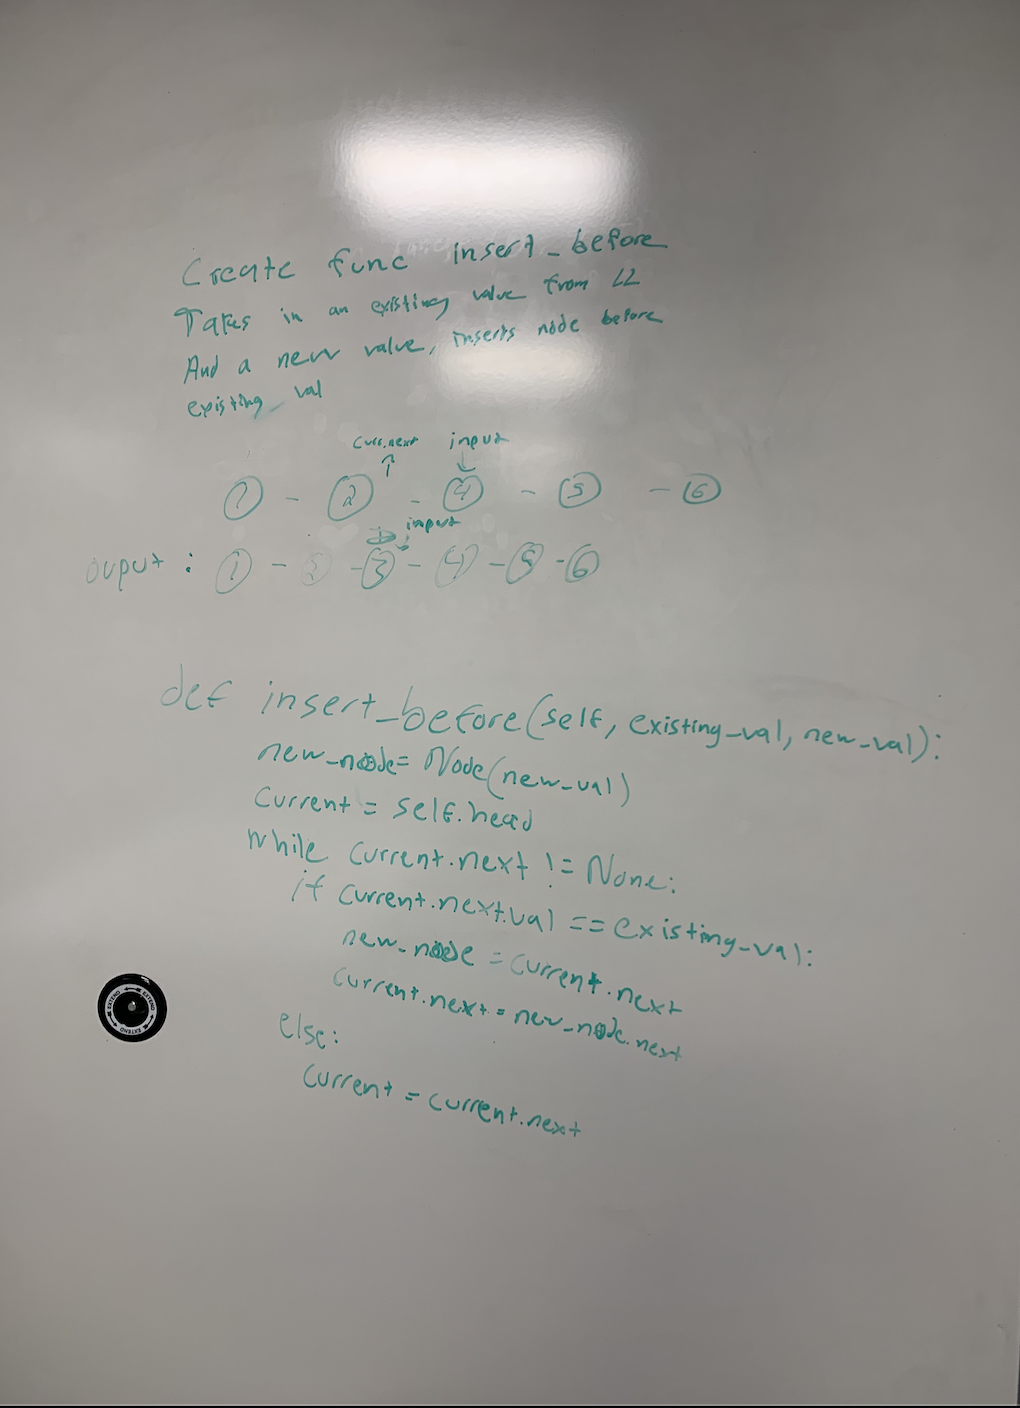 Create func insert_before
Takes in an existing value from LL
And a new value, inserts node before
existing val
curr.next input
1 - 2 - 4 - 5 - 6
input
ouput : 1 - 2 - 3 - 4 - 5 - 6
def insert_before(self, existing_val, new_val):
new_node = Node(new_val)
current = self.head
while current.next != None:
if current.next.val == existing_val:
new_node = current.next
current.next = new_node.next
else:
current = current.next
EXTEND EXTEND EXTEND